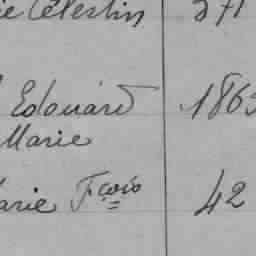 Celestin 371
Edouard 1863
Marie
Marie Fçois 42